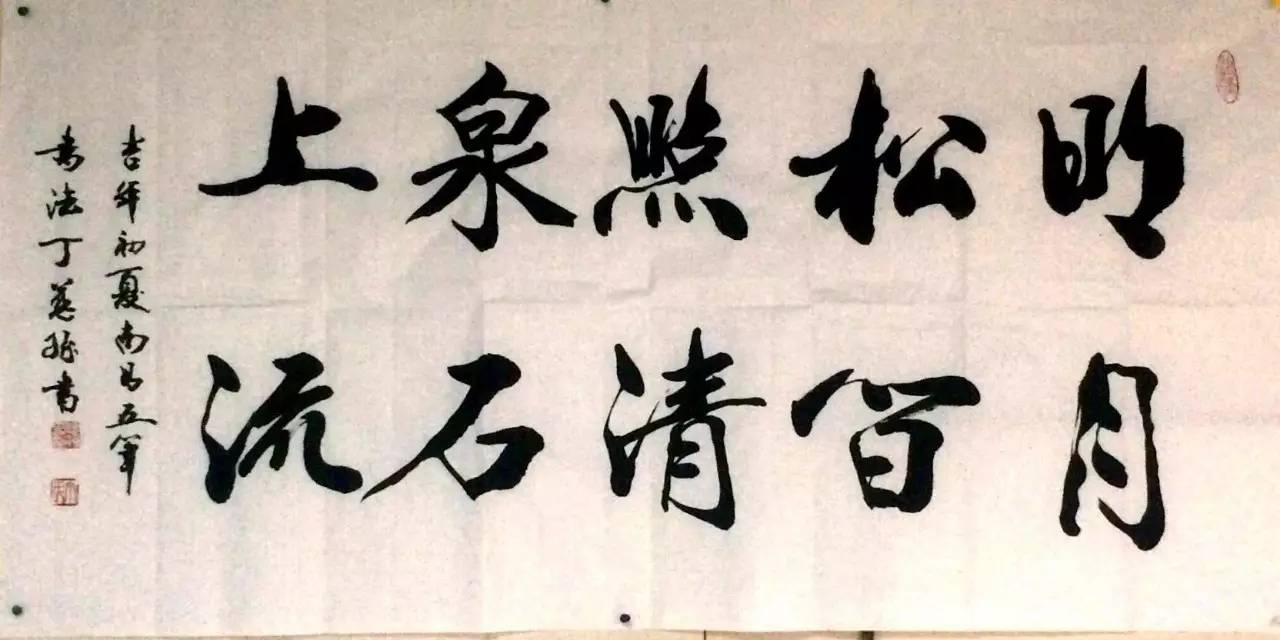 明月
松间
照清
泉石
上流
吉年初夏南昌五笔
书法丁慈矿书